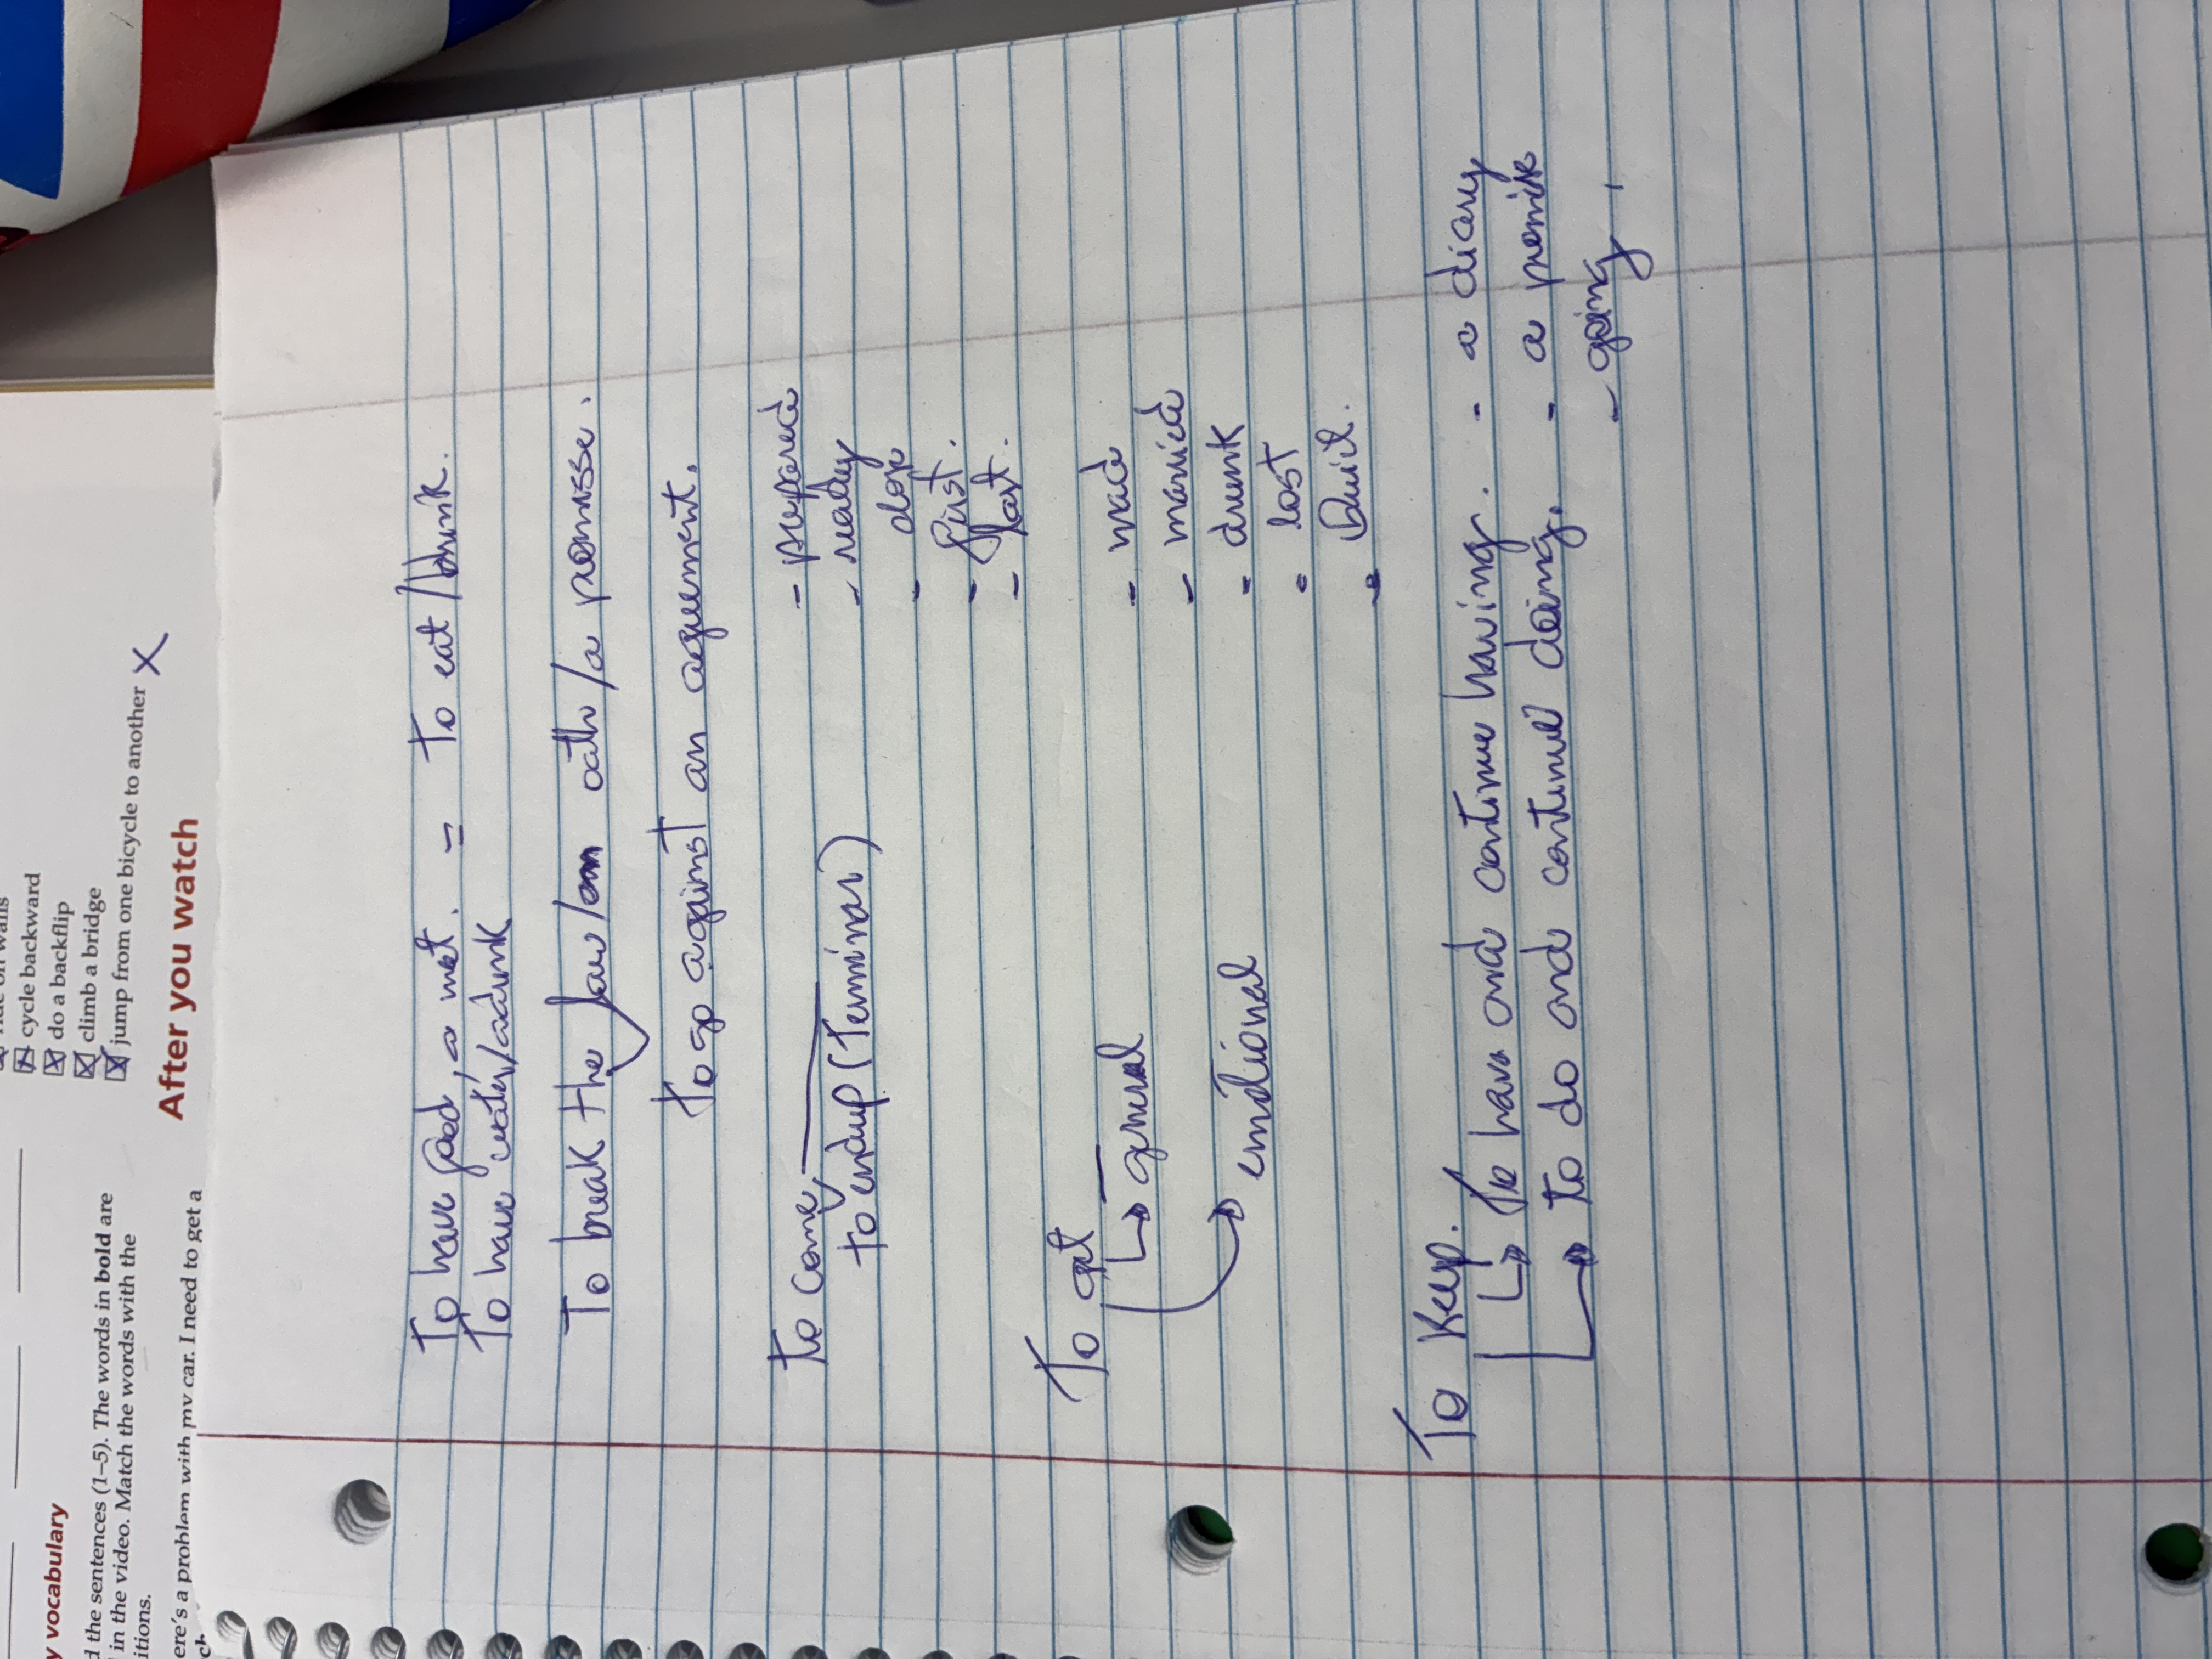 cycle backward
do a backflip
climb a bridge
jump from one bicycle to another X
After you watch
y vocabulary
d the sentences (1–5). The words in bold are
in the video. Match the words with the
itions.
ere's a problem with my car. I need to get a
To have food, a met. = To eat/drink.
To have water/adrink
To break the law/an oath/a promisse.
To go against an aguement.
To come - prepared
to endup (Terminar) - ready
- close
- First.
- last.
To get - mad
general - married
- drunk
emotional - lost
- Quit.
To Keep.
To have and continue having. - a diary
To do and continue doing. - a promise
- going